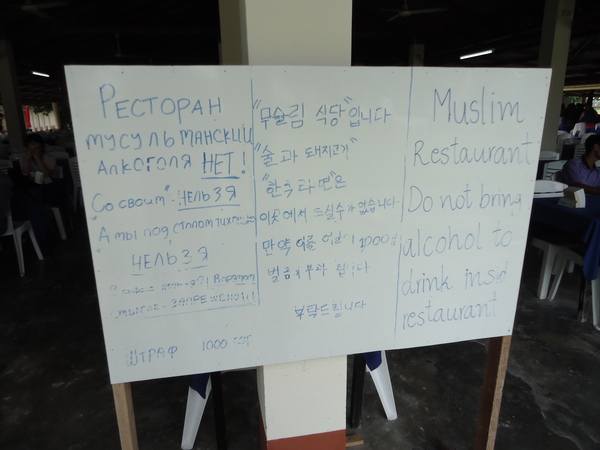 РЕСТОРАН
МУСУЛЬМАНСКИЙ
АЛКОГОЛЯ НЕТ!
"Со своим" - НЕЛЬЗЯ
"А мы под столом тихонько"
НЕЛЬЗЯ
ЗАПРЕЩЕНЫ!!
ШТРАФ 1000
"무슬림 식당"입니다
"술과 돼지고기"
"한국라면"은
이곳에서 드실수가 없습니다
만약 이를 1000밧
벌금 부과 됩니다
부탁드립니다
Muslim
Restaurant
Do not bring
alcohol to
drink insid
restaurant